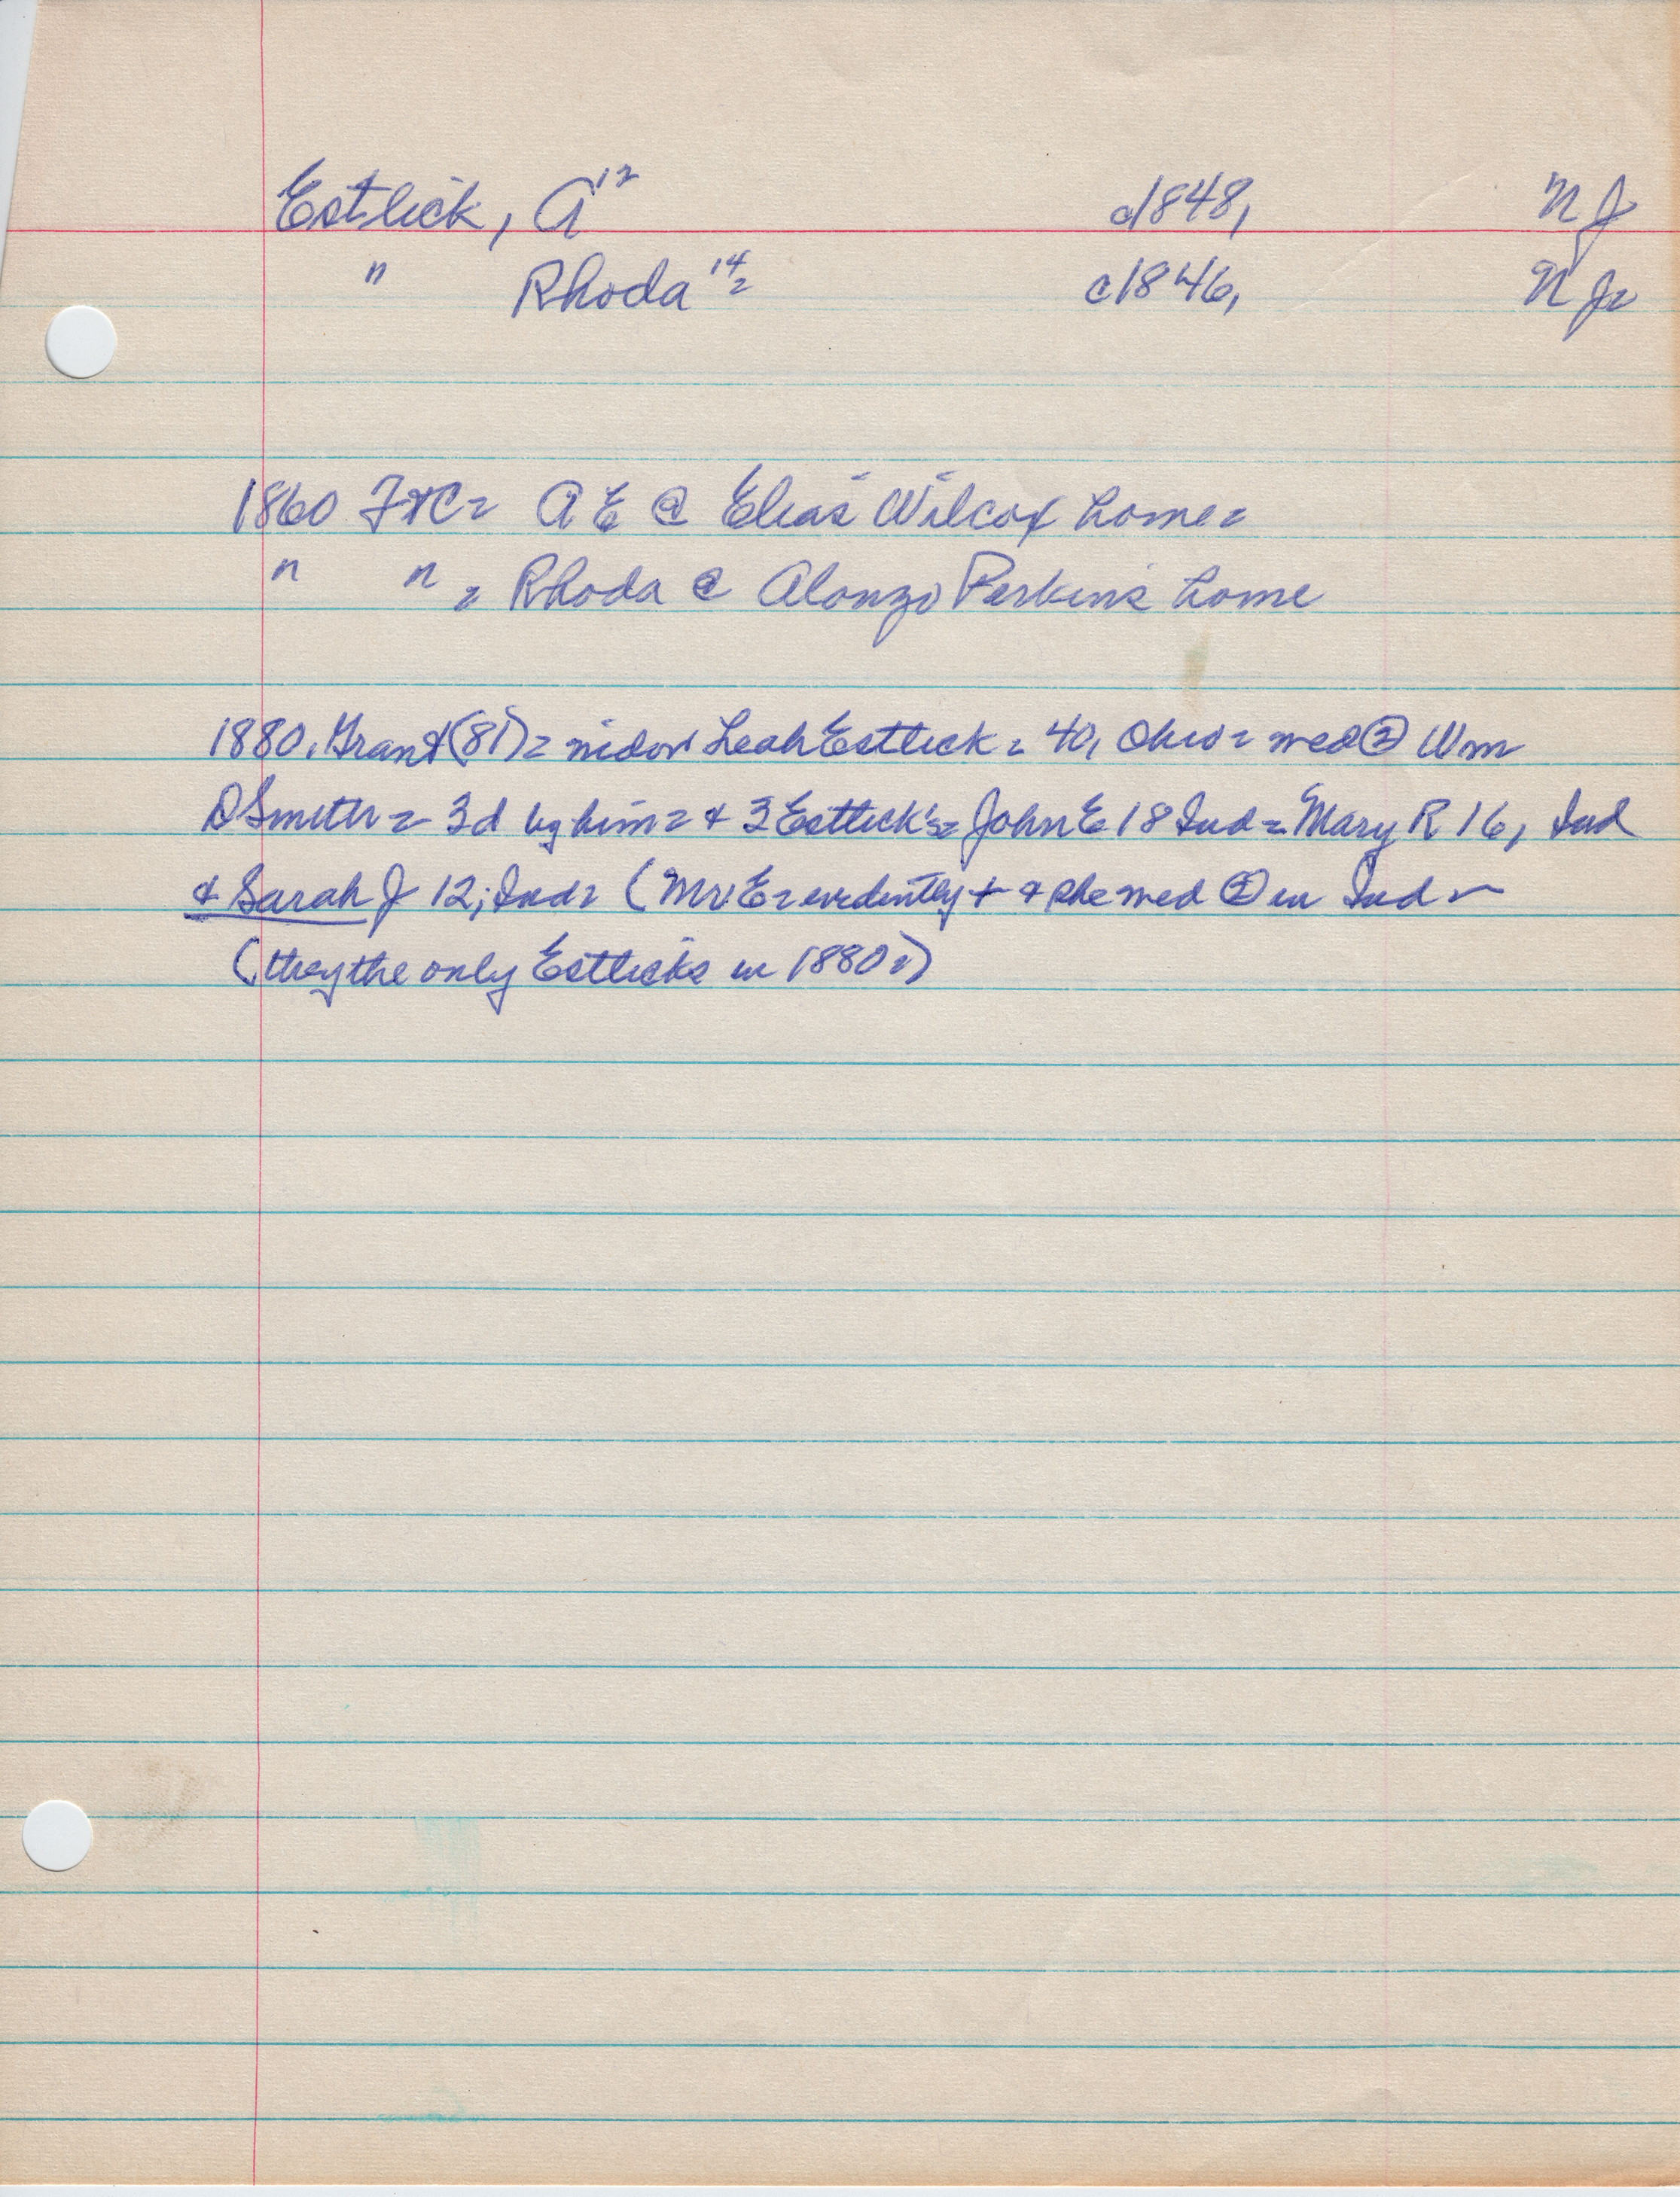 Estlick, A 12 c1848, N J
" Rhoda 14= c1846, N J=
1860 = A E @ Elias Wilcox home=
" " = Rhoda @ Alonzo Perkins home
1880, Grant (81) = widow Leah Estlick = 40, Ohio = med ② Wm
D Smith = 3d by him = & 3 Estlick's = John E 18 Ind = Mary R 16, Ind
& Sarah J 12, Ind = (Mr E = evidently + & she med ② in Ind =
(they the only Estlicks in 1880=)